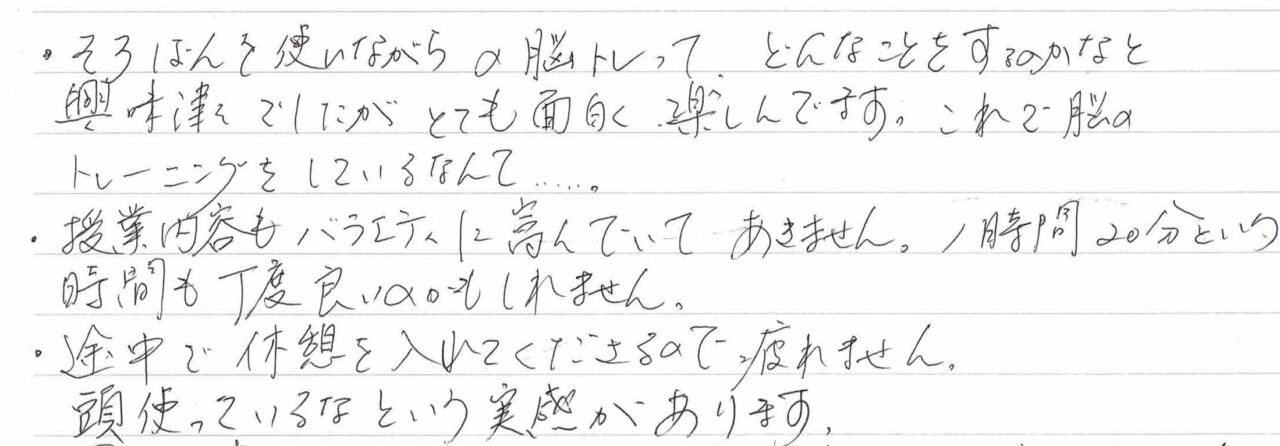 ・そろばんを使いながらの脳トレって、どんなことをするのかなと
興味津々でしたがとても面白く楽しんでます。これで脳の
トレーニングをしているなんて……。
・授業内容もバラエティに富んでいてあきません。1時間20分という
時間も丁度良いのかもしれません。
・途中で休憩を入れてくださるので疲れません。
頭使っているなという実感があります。